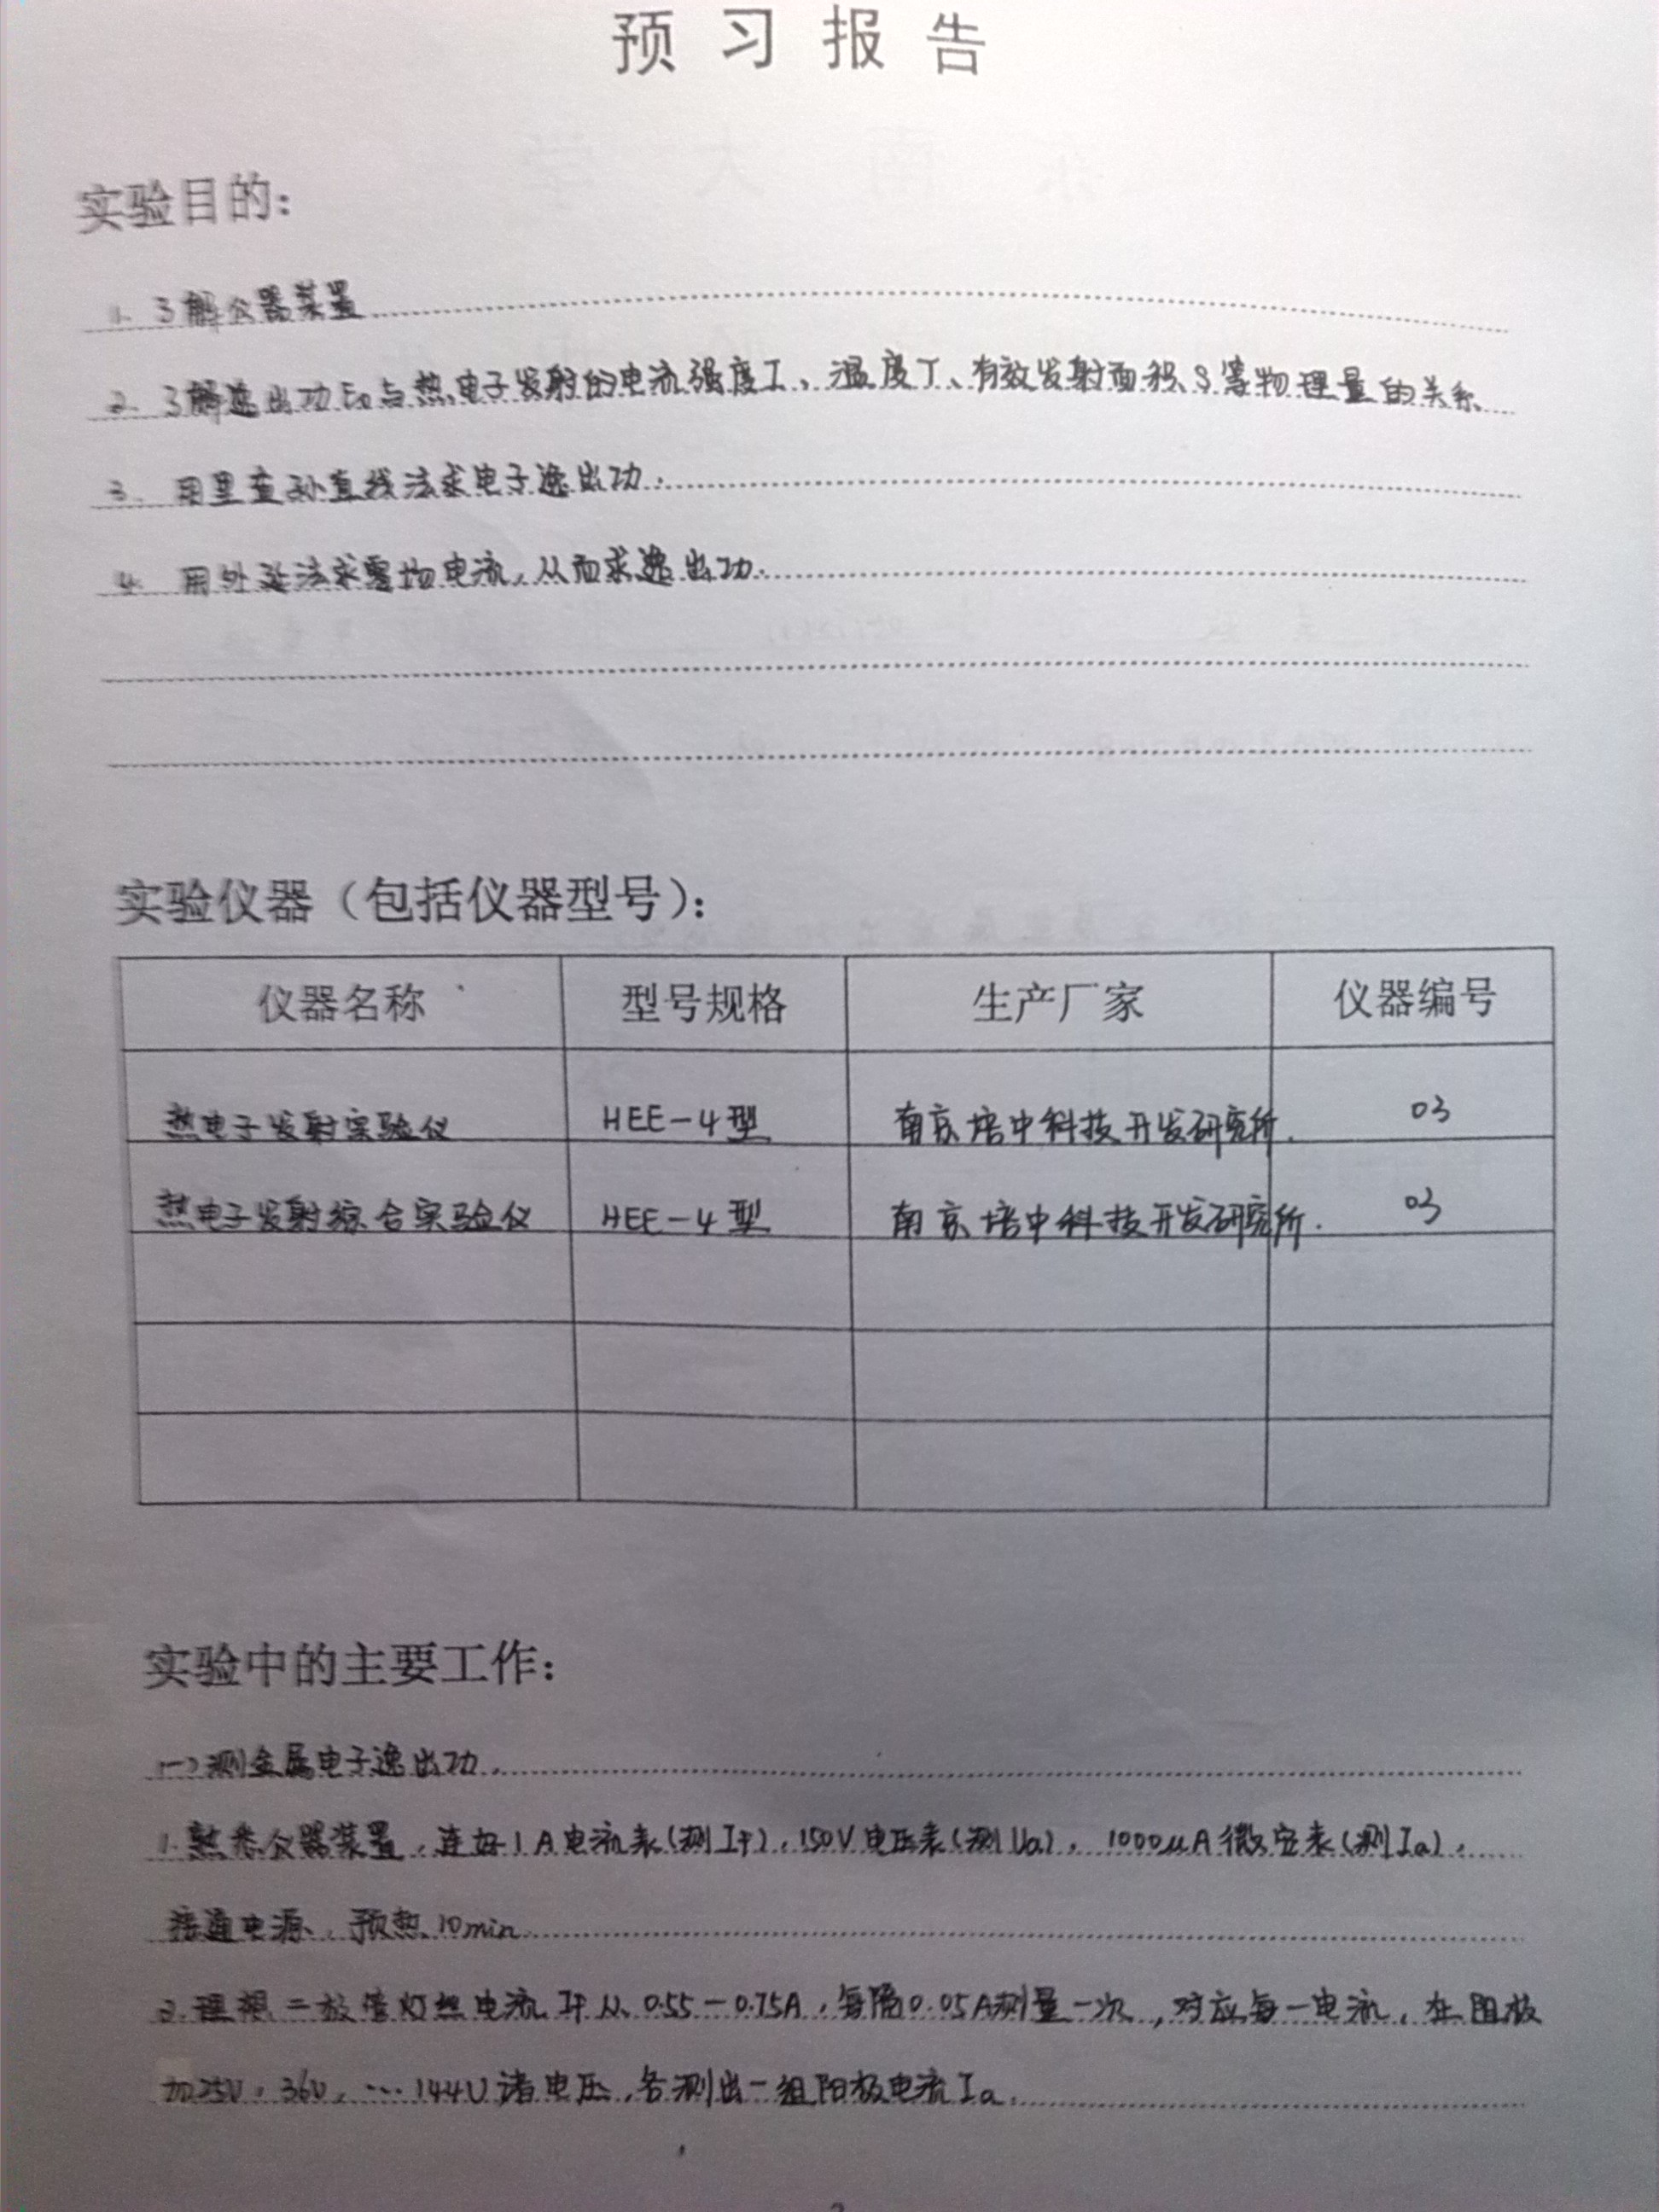 预习报告
实验目的:
1. 了解仪器装置
2. 了解逸出功E₀与热电子发射的电流强度I、温度T、有效发射面积S等物理量的关系
3. 用里查孙直线法求电子逸出功.
4. 用外延法求零场电流,从而求逸出功.
实验仪器(包括仪器型号):
仪器名称 型号规格 生产厂家 仪器编号
热电子发射实验仪 HEE-4型 南京培中科技开发研究所. 03
热电子发射综合实验仪 HEE-4型 南京培中科技开发研究所. 03
实验中的主要工作:
(一)测金属电子逸出功.
1.熟悉仪器装置,连好1A电流表(测If),150V电压表(测Ua),1000μA微安表(测Ia),
接通电源,预热10min.
2.理想二极管灯丝电流If从0.55-0.75A,每隔0.05A测量一次,对应每一电流,在阳极
加25V,36V,…144V诸电压,各测出一组阳极电流Ia.